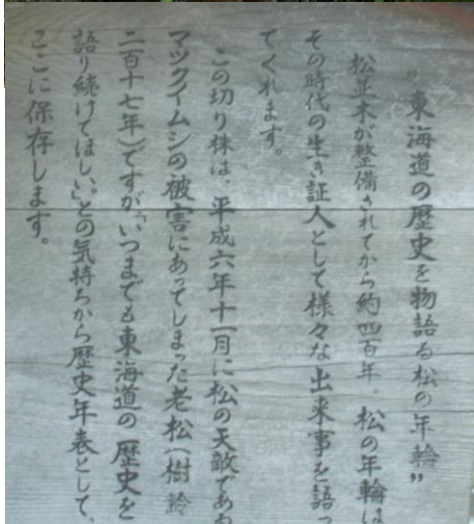 ”東海道の歴史を物語る松の年輪”
松並木が整備されてから約四百年。松の年輪は
その時代の生き証人として様々な出来事を語っ
てくれます。
この切り株は、平成六年十一月に松の天敵である
マツクイムシの被害にあってしまった老松(樹齢
二百十七年)ですが「いつまでも東海道の歴史を
語り続けてほしい。」との気持ちから歴史年表として、
ここに保存します。